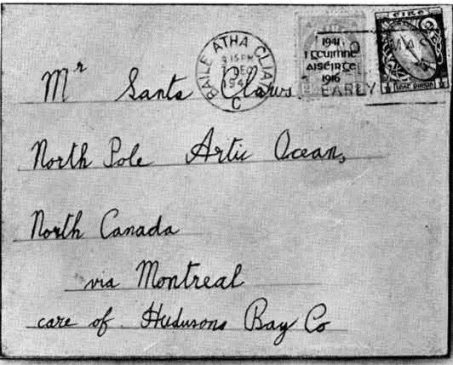 BAILE ATHA CLIA
DEC
C
1941
I gCUIMHNE
AISÉIRGE
1916
ÉIRE
EARLY
Mr Santa Claws
North Pole Artic Ocean,
North Canada
via Montreal
care of Hudusons Bay Co